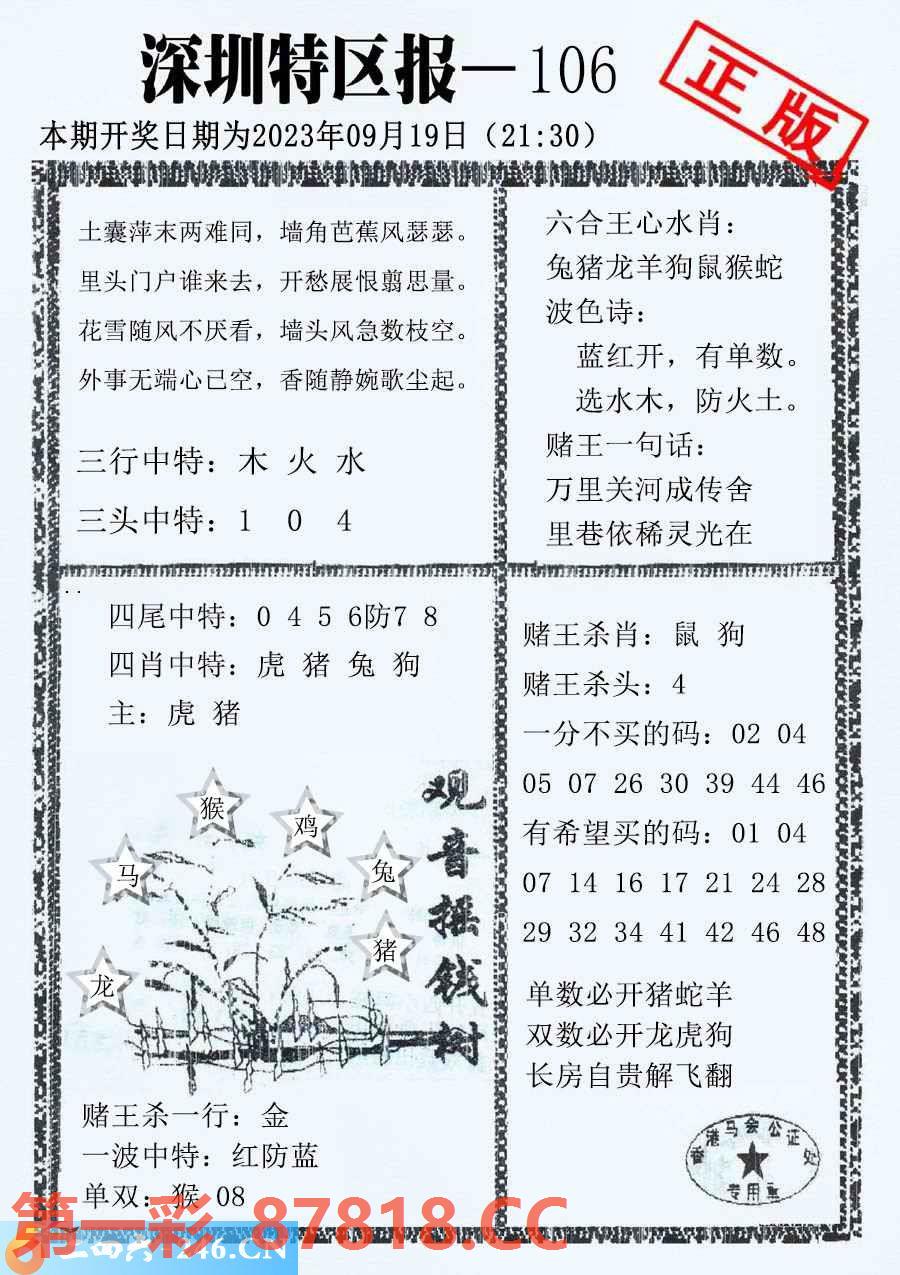 深圳特区报—106
正版
本期开奖日期为2023年09月19日（21:30）
土囊萍末两难同，墙角芭蕉风瑟瑟。
里头门户谁来去，开愁展恨翦思量。
花雪随风不厌看，墙头风急数枝空。
外事无端心已空，香随静婉歌尘起。
三行中特：木 火 水
三头中特：1 0 4
六合王心水肖：
兔猪龙羊狗鼠猴蛇
波色诗：
蓝红开，有单数。
选水木，防火土。
赌王一句话：
万里关河成传舍
里巷依稀灵光在
四尾中特：0 4 5 6防7 8
四肖中特：虎 猪 兔 狗
主：虎 猪
猴
鸡
马
兔
猪
龙
观音摇钱树
赌王杀一行：金
一波中特：红防蓝
单双：猴 08
赌王杀肖：鼠 狗
赌王杀头：4
一分不买的码：02 04
05 07 26 30 39 44 46
有希望买的码：01 04
07 14 16 17 21 24 28
29 32 34 41 42 46 48
单数必开猪蛇羊
双数必开龙虎狗
长房自贵解飞翻
香港马会公证处
专用章
第一彩 87818.CC
246.CN